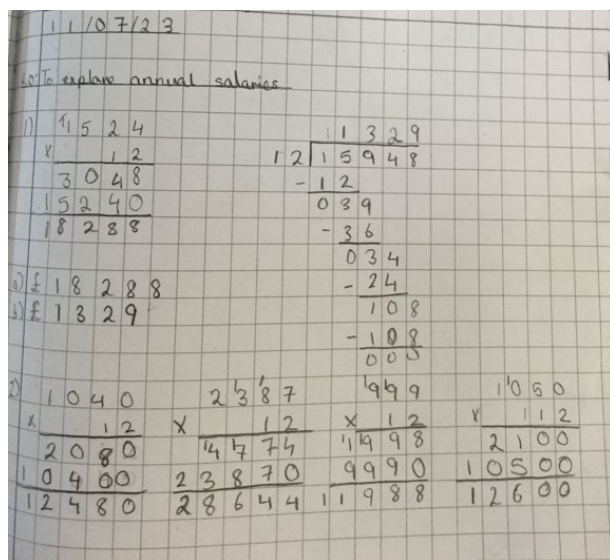 11/07/23
LO: To explane annual salaries
1) 1524
x 12
3048
15240
18288
a) £ 18288
b) £ 1329
11329
12 15948
- 12
039
- 36
034
- 24
108
- 108
000
2) 1040
x 12
2080
10400
12480
2387
x 12
4774
23870
28644
999
x 12
1998
9990
11988
1050
x 112
2100
10500
12600